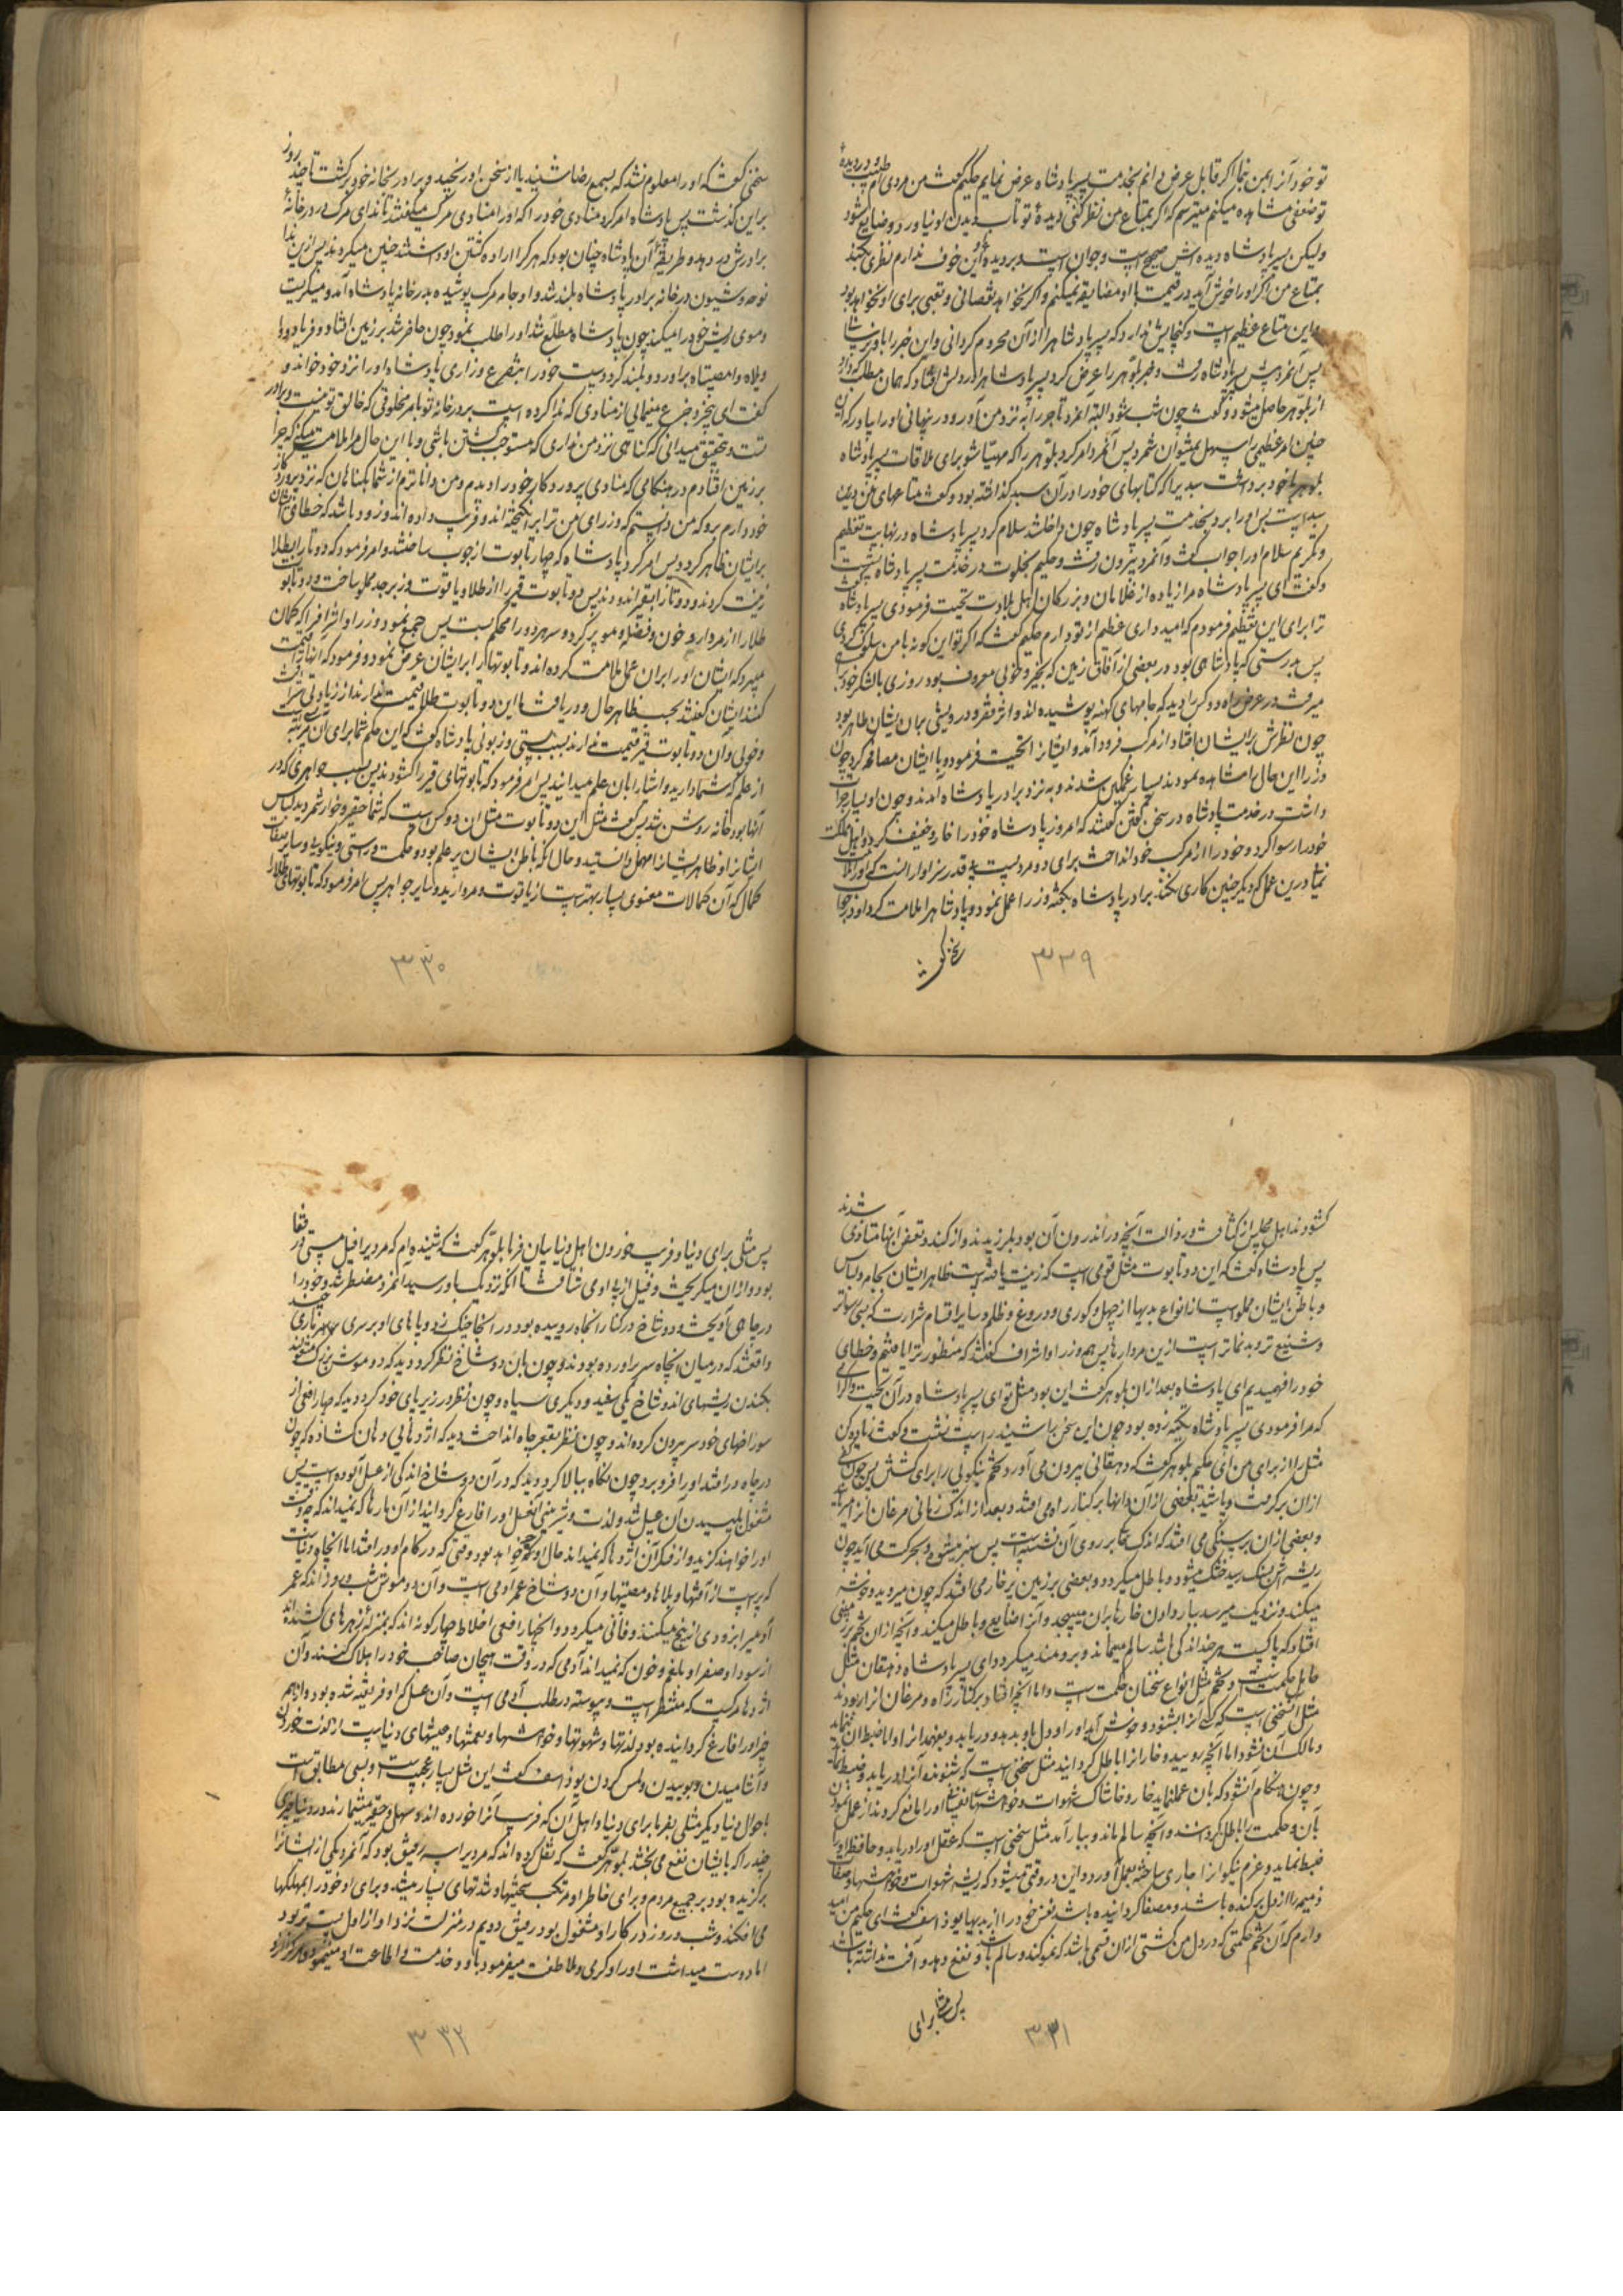 تو خود آنرا بمن بنما اگر قابل عرض دانم بخدمت پسر پادشاه عرض نمایم حکیم گفت من مردی ام طبیب و در دیدهٔ
تو ضعفی مشاهده میکنم میترسم که اگر بمتاع من نظر کنی دیدهٔ تو تاب دیدن او نیاورد و ضایع شود
ولیکن پسر پادشاه دیده اش صحیح است و جوان است و بر دیدهٔ او این خوف ندارم نظری بکند
بمتاع من اگر او را خوش آید در قیمت با او مضایقه نمیکنم و اگر نخواهد نقصانی و تعبی برای او نخواهد بود
و این متاع عظیم است و گنجایش ندارد که پسر پادشاه را از آن محروم گردانی و این خبر را باو نرسانی
پس آنمرد پیش پسر پادشاه رفت و خبر بلوهر را عرض کرد پسر پادشاه را در دلش افتاد که همان مطلب که دارد
از بلوهر حاصل میشود و گفت چون شب شود البته آنمرد تاجر را به نزد من آور و در پنهانی او را بیاور که این
چنین امر عظیمی را سهل نمیتوان شمرد پس آنمرد امر کرد بلوهر را که مهیا شو برای ملاقات پسر پادشاه
بلوهر با خود برداشت سبدی را که کتابهای خود را در آن سبد گذاشته بود و گفت متاعهای من درین
سبد است پس او را برد بخدمت پسر پادشاه چون داخل شد سلام کرد پسر پادشاه در نهایت تعظیم
و تکریم سلام او را جواب گفت و آنمرد بیرون رفت و حکیم بخلوت در خدمت پسر پادشاه نشست
و گفت ای پسر پادشاه مرا زیاده از غلامان و بزرگان اهل بلادت تحیت فرمودی پسر پادشاه گفت
ترا برای این تعظیم فرمودم که امیدواری عظیم از تو دارم حکیم گفت که اگر تو این گونه با من سلوک کردی
پس بدرستی که پادشاهی بود در بعضی از آفاق زمین که بخیر و خوبی معروف بود روزی با لشکر خود براهی
میرفت در عرض راه دو کس را دید که جامهای کهنه پوشیده اند و اثر فقر و درویشی بر ایشان ظاهر بود
چون نظرش بر ایشان افتاد از مرکب فرود آمد و ایشانرا تحیت فرمود و با ایشان مصافحه کرد چون
وزرا این حال را مشاهده نمودند بسیار غمگین شدند و به نزد برادر پادشاه آمدند و چون او بسیار جرات
داشت در خدمت پادشاه در سخن گفتن گفتند که امروز پادشاه خود را خار و خفیف کرد و اهل مملکت
خود را رسوا کرد و خود را از مرکب خود انداخت برای دو مرد پست بی قدر سزاوار آنست که او را ملامت
نمائی درین عمل که دیگر چنین کاری نکند برادر پادشاه بگفتهٔ وزرا عمل نمود و پادشاه را ملامت کرد او در جواب
سخنی گفت
۳۲۹
سخنی گفت که او را معلوم نشد که بسمع رضا شنید یا از سخن او رنجید و برادر بخانهٔ خود برگشت تا چند روز
برین گذشت پس پادشاه امر کرد منادی خود را که او را منادی مرگ میگفتند تا ندای مرگ در در خانهٔ
برادرش در دهد و طریقهٔ آن پادشاه چنان بود که هر کرا ارادهٔ کشتن او داشتند چنین میکردند پس ازین ندا
نوحه و شیون در خانه برادر پادشاه بلند شد و او جامه مرگ پوشیده بدر خانه پادشاه آمد و میگریست
و موی ریش خود را میکند چون پادشاه مطلع شد او را طلب نمود چون حاضر شد بر زمین افتاد و فریاد وا
ویلاه و امصیبتاه برآورد و بلند کرد دست خود را بتضرع و زاری پادشاه او را نزد خود خواند و
گفت ای بیخرد جزع مینمائی از منادی که ندا کرده است بر در خانه تو بامر مخلوقی که خالق تو نیست و برادر
تست و بتحقیق میدانی که گناهی نزد من نداری که مستوجب کشتن باشی و با این حال مرا ملامت میکنی که چرا
بر زمین افتادم در هنگامی که منادی پروردگار خود را دیدم و من داناترم از شما بگناهان که نزد پروردگار
خود دارم برو که من دانستم که وزرای من ترا برانگیخته اند و فریب داده اند و زود باشد که خطای ایشان
بر ایشان ظاهر گردد پس امر کرد پادشاه که چهار تابوت از چوب ساختند و امر فرمود که دو تا را بطلا
زینت کردند و دو تا را بقیر اندودند پس دو تابوت قیر را از طلا و یاقوت و زبرجد مملو ساخت و دو تابوت
طلا را از مردار و خون و فضله و مو پر کرد و سر هر دو را محکم بست پس جمع نمود وزرا و اشراف را که گمان
میبرد که ایشان او را بر آن عمل ملامت کرده اند و تابوتها را بر ایشان عرض نمود و فرمود که اینها را قیمت
کنند ایشان گفتند بحسب ظاهر حال و دریافت ما این دو تابوت طلا قیمت ندارند از زیادتی شرافت
و خوبی و آن دو تابوت قیر قیمت ندارند بسبب پستی و زبونی پادشاه گفت که این حکم شما برای آن مرتبه ایست
از علم که شما دارید و اشیا را بآن علم میدانید پس امر فرمود که تابوتهای قیر را گشودند پس بسبب جواهری که در
آنها بود خانه روشن شد پس گفت مثل این دو تابوت مثل آن دو کس است که شما حقیر و خوار شمردید لباس
ایشانرا و ظاهر ایشانرا سهل دانستید و حال آنکه باطن ایشان پر علم بود و حکمت و راستی و نیکوئی و سایر صفات
کمال که آن کمالات معنوی بسیار بهتر است از یاقوت و مروارید و سایر جواهر پس امر فرمود که تابوتهای طلا را
۳۳۰
گشودند اهل مجلس از کثافت و رذالت آنچه در اندرون آن بود بلرزیدند و از گند و تعفن آنها متأذی شدند
پس پادشاه گفت که این دو تابوت مثل قومی است که زینت یافته است ظاهر ایشان بجامه و لباس
و باطن ایشان مملو است از انواع بدیها از جهل و کوری و دروغ و ظلم و سایر اقسام شرارت که بسی رسواتر
و شنیع تر و بدنماتر است ازین مردارها پس همه وزرا و اشراف گفتند که منظور ترا یافتیم و خطای
خود را فهمیدیم ای پادشاه بعد از آن بلوهر گفت این بود مثل تو ای پسر پادشاه در آن تحیت و اکرامی
که مرا فرمودی پسر پادشاه تکیه زده بود چون این سخن را شنید راست نشست و گفت زیاده کن
مثل را از برای من ای حکیم بلوهر گفت که دهقانی بیرون می آورد تخم نیکوئی را برای کشتن پس چون کفی
از آن برگرفت و پاشید بعضی از آن دانها بر کنار راه می افتد و بعد از اندک زمانی مرغان آنرا میربایند
و بعضی از آن بر سنگی می افتد که اندک خاکی بر روی آن نشسته است پس سبز میشود و بحرکت می آید چون
ریشه اش بسنگ رسید خشک میشود و باطل میگردد و بعضی بر زمین پر خار می افتد که چون میروید و خوشه
میکند و نزدیک میرسد ببار دادن خارها بر آن میپیچد و آنرا ضایع و باطل میکند و آنچه از آن تخم بر زمینی
افتاد که پاکست هر چند اندکی باشد سالم میماند و برومند میگردد ای پسر پادشاه دهقان مثل
حامل حکمت است و تخم مثل انواع سخنان حکمت است و اما آنچه افتاد بر کنار راه و مرغان آنرا ربودند
مثل آن سخنی است که گوش آنرا بشنود و خوش آید او را و دل باو ندهد و در نیابد و نفهمد آنرا و اما ضبط آن ننماید
و مالک آن نشود اما آنچه رویید و خار آنرا باطل گردانید مثل سخنی است که شنونده آنرا دریابد و ضبط نماید
و چون هنگام آن شود که بآن عمل نماید خار و خاشاک شهوات و خواهشهای نفسانی او را مانع گردند از عمل نمودن
بآن و حکمت را باطل گردانند و آنچه سالم ماند و ببار آمد مثل سخنی است که عقل او را دریابد و حافظه او را
ضبط نماید و عزم نیکو آنرا جاری ساخته بعمل آورد و این در وقتی میشود که ریشه شهوات و خواهشها و صفات
ذمیمه را از دل برکنده باشد و مصفا گردانیده باشد نفس خود را از بدیها یوذاسف گفت ای حکیم من امید
دارم که آن تخم حکمتی که در دل من کشتی از آن قسمی باشد که نمو کند و سالم باشد و نفع دهد و آفت نداشته باشد
پس مثلی برای
۳۳۱
پس مثلی برای دنیا و فریب خوردن اهل دنیا بیان فرما بلوهر گفت که شنیده ام که مردی را فیل مستی در قفا
بود و از آن میگریخت و فیل از پی او می شتافت تا آنکه نزدیک باو رسید آنمرد مضطر شد و خود را
در چاهی آویخت و دو شاخ در کنار آنچاه روییده بود در آنجا چنگ زد و پاهای او بر سر ماری چند
واقع شد که در میان آنچاه سر برآورده بودند و چون بآن دو شاخ نظر کرد دید که دو موش بزرگ مشغولند
بکندن ریشهای آندو شاخ یکی سفید و دیگری سیاه و چون نظر در زیر پای خود کرد دید که چهار افعی از
سوراخهای خود سر بیرون کرده اند و چون نظر بقعر چاه انداخت دید که اژدهایی دهان گشاده که چون
در چاه درافتد او را فرو برد چون نگاه ببالا کرد دید که در آن دو شاخ اندکی از عسل آلوده است پس
مشغول بلیسیدن آن عسل شد و لذت و شیرینی آن عسل او را فارغ گردانید از آن مارها که نمیداند که چه وقت
او را خواهند گزید و از فکر آن اژدها که نمیداند حال او چه خواهد بود وقتی که در کام او درافتد اما آنچاه دنیاست
که پر است از آفتها و بلاها و مصیبتها و آن دو شاخ عمر آدمی است و آن دو موش شب و روزاند که عمر
آدمی را بزودی از بیخ میکنند و فانی میگردد و آن چهار افعی اخلاط چهارگونه اند که بمنزلهٔ زهرهای کشنده اند
از سودا و صفرا و بلغم و خون که نمیداند آدمی که در چه وقت بهیجان صاحب خود را هلاک کنند و آن
اژدها مرگ است که منتظر است و پیوسته در طلب آدمی است و آن عسل که او فریفته شده بود و از همه
چیز او را فارغ گردانیده بود لذتها و شهوتها و خواهشها و نعمتها و عیشهای دنیاست از لذت خوردن
و آشامیدن و بوییدن و لمس کردن یوذاسف گفت این مثل بسیار عجیب است و بسی مطابق است
با احوال دنیا دیگر مثلی بفرما برای دنیا و اهل آن که فریب آنرا خورده اند و سهل و حقیر میشمارند در دنیا چیزی
چند را که بایشان نفع می بخشد بلوهر گفت که نقل کرده اند که مردی را سه رفیق بود که آنمرد یکی از ایشانرا
برگزیده بود بر جمیع مردم و برای خاطر او مرتکب سختیها و شدتهای بسیار میشد و برای او خود را بمهلکها
می افکند و شب و روز در کار او مشغول بود رفیق دویم در منزلت نزد او از اول پست تر بود
اما دوست میداشت او را و اکرام و ملاطفت میفرمود باو و خدمت و اطاعت او مینمود
۳۳۲